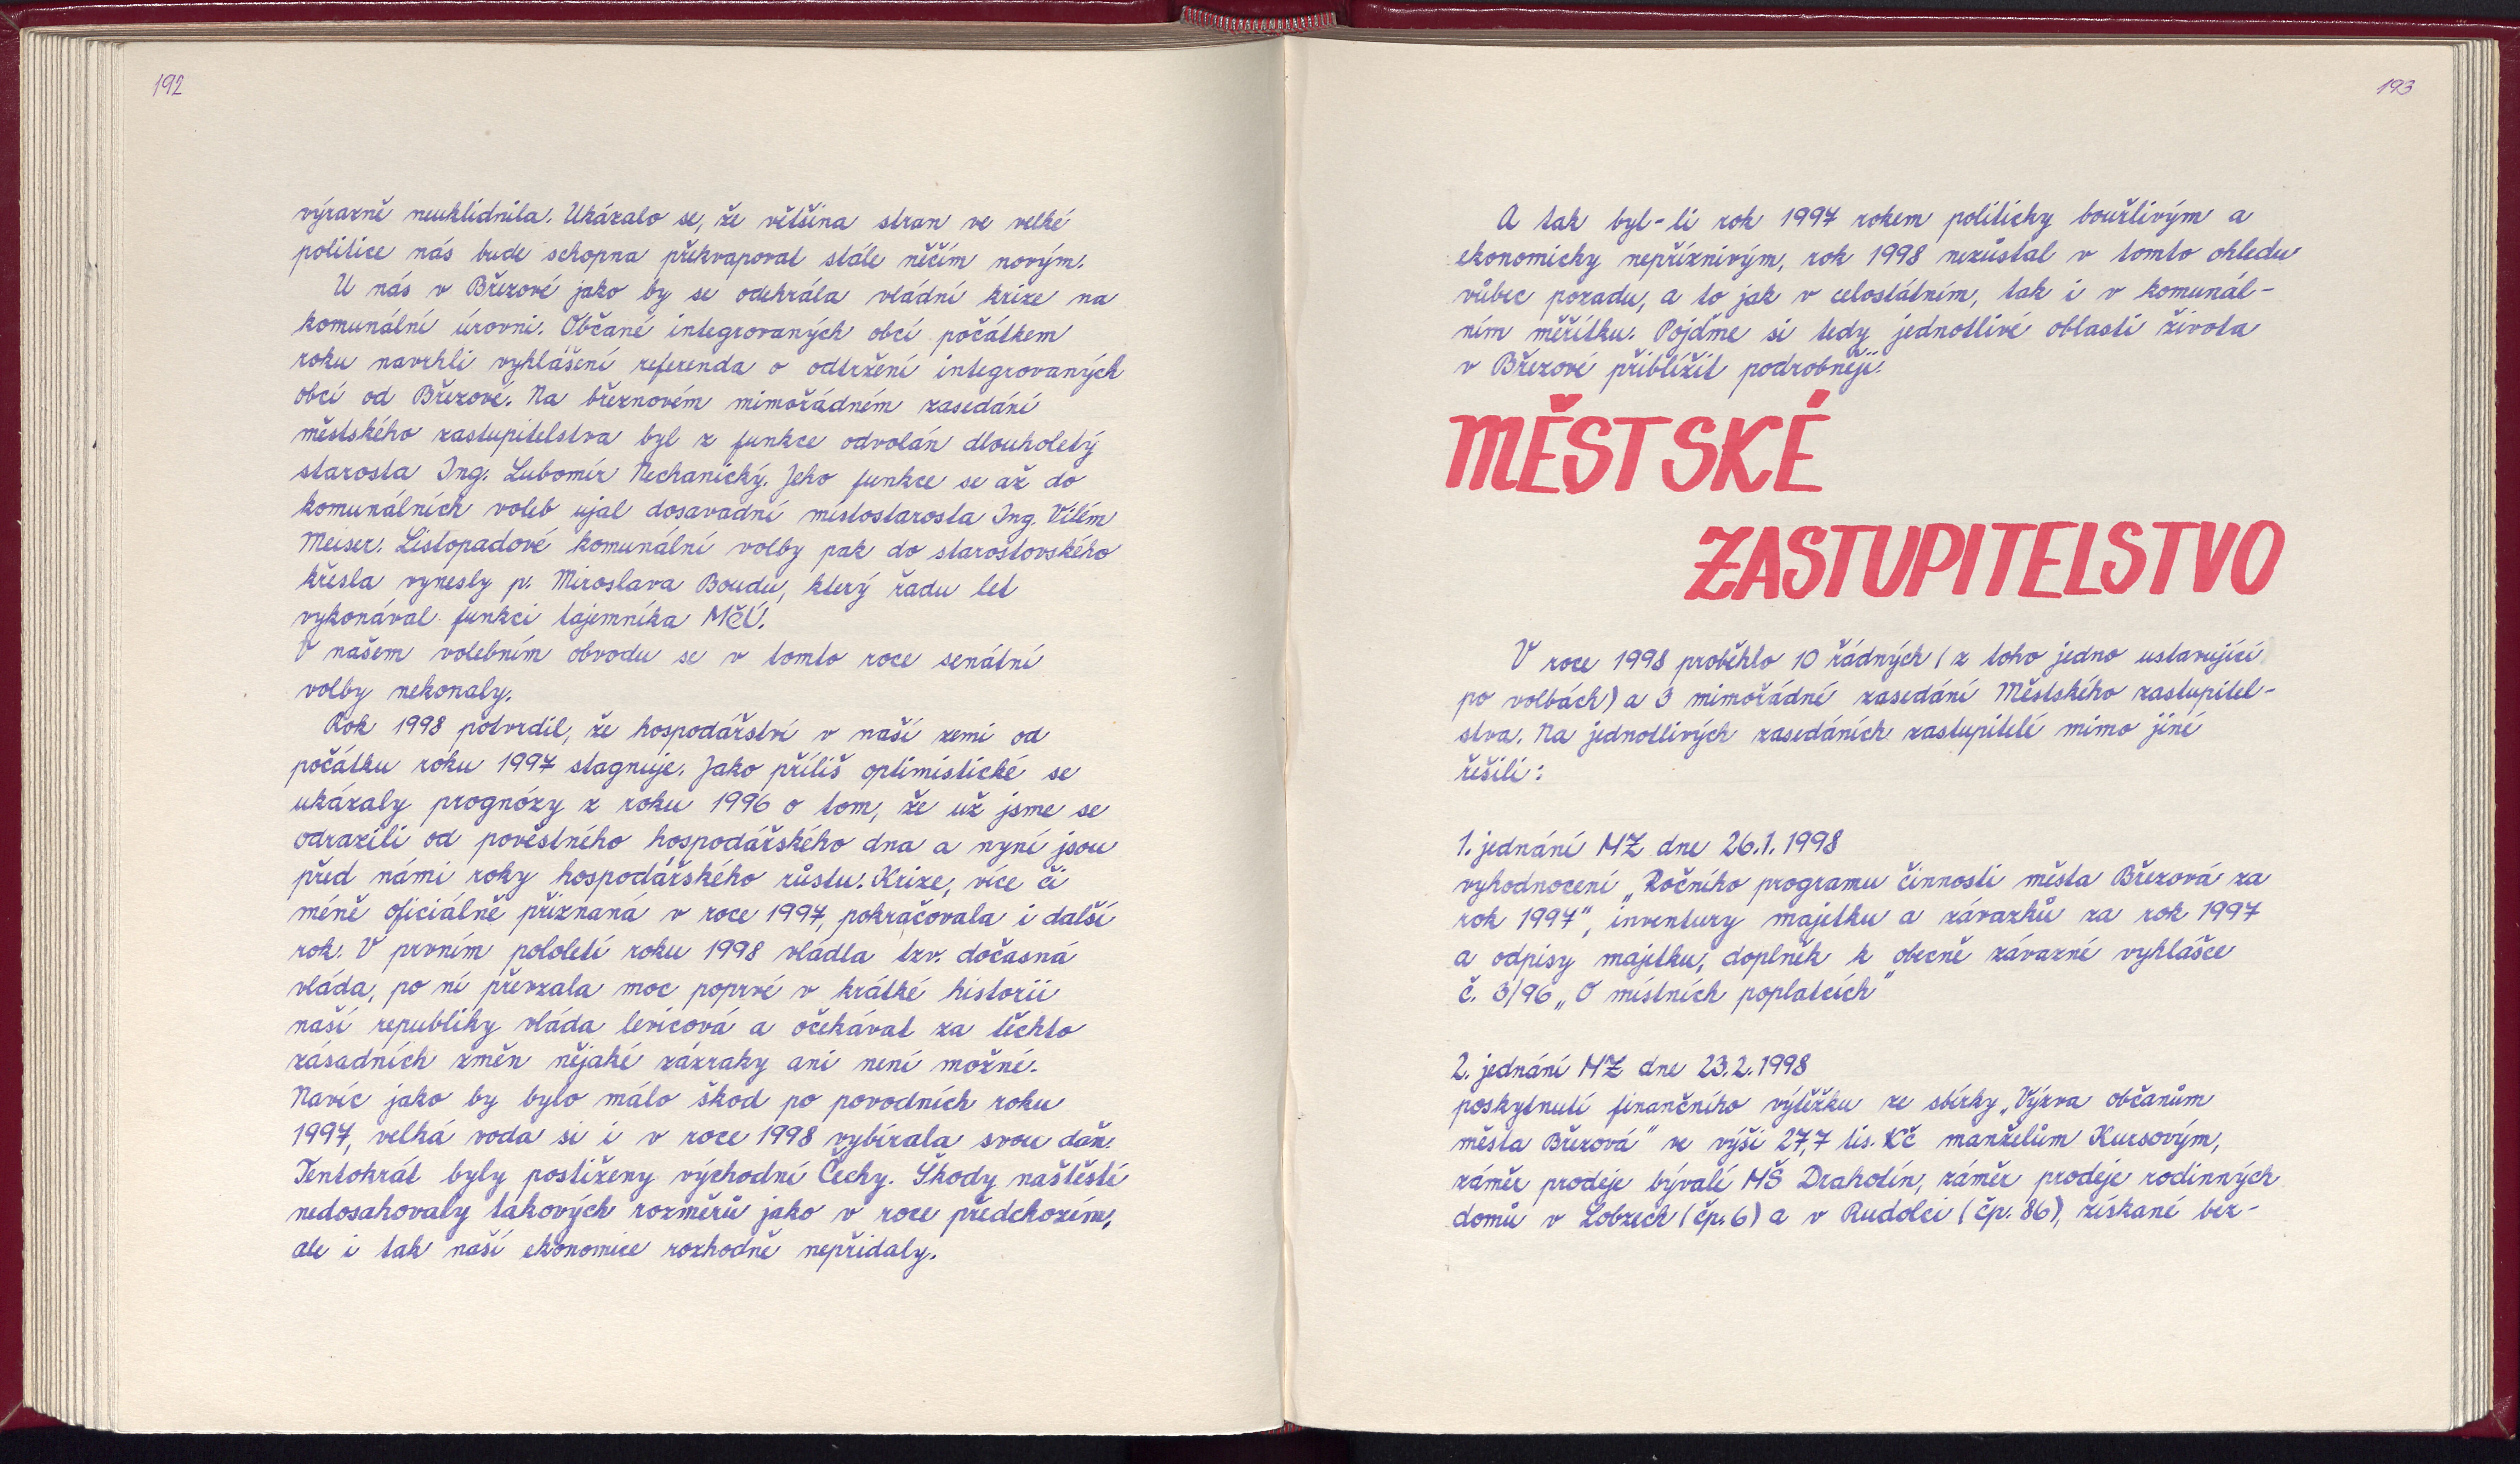 192
výrazně neuklidnila. Ukázalo se, že většina stran ve velké
politice nás bude schopna překvapovat stále něčím novým.
U nás v Březové jako by se odehrála vládní krize na
komunální úrovni. Občané integrovaných obcí počátkem
roku navrhli vyhlášení referenda o odtržení integrovaných
obcí od Březové. Na březnovém mimořádném zasedání
městského zastupitelstva byl z funkce odvolán dlouholetý
starosta Ing. Lubomír Mechanický. Jeho funkce se až do
komunálních voleb ujal dosavadní místostarosta Ing. Vilém
Meiser. Listopadové komunální volby pak do starostovského
křesla vynesly p. Miroslava Boudu, který řadu let
vykonával funkci tajemníka MěÚ.
V našem volebním obvodu se v tomto roce senátní
volby nekonaly.
Rok 1998 potvrdil, že hospodářství v naší zemi od
počátku roku 1997 stagnuje. Jako příliš optimistické se
ukázaly prognózy z roku 1996 o tom, že už jsme se
odrazili od pověstného hospodářského dna a nyní jsou
před námi roky hospodářského růstu. Krize, více či
méně oficiálně přiznaná v roce 1997, pokračovala i další
rok. V prvním pololetí roku 1998 vládla tzv. dočasná
vláda, po ní převzala moc poprvé v krátké historii
naší republiky vláda levicová a očekávat za těchto
zásadních změn nějaké zázraky ani není možné.
Navíc jako by bylo málo škod po povodních roku
1997, velká voda si i v roce 1998 vybírala svou daň.
Tentokrát byly postiženy východní Čechy. Škody naštěstí
nedosahovaly takových rozměrů jako v roce předchozím,
ale i tak naší ekonomice rozhodně nepřidaly.
193
A tak byl-li rok 1997 rokem politicky bouřlivým a
ekonomicky nepříznivým, rok 1998 nezůstal v tomto ohledu
vůbec pozadu, a to jak v celostátním, tak i v komunál-
ním měřítku. Pojďme si tedy jednotlivé oblasti života
v Březové přiblížit podrobněji.
MĚSTSKÉ
ZASTUPITELSTVO
V roce 1998 proběhlo 10 řádných (z toho jedno ustavující
po volbách) a 3 mimořádné zasedání Městského zastupitel-
stva. Na jednotlivých zasedáních zastupitelé mimo jiné
řešili:
1. jednání MZ dne 26.1.1998
vyhodnocení „Ročního programu činnosti města Březová za
rok 1997“, inventury majetku a závazků za rok 1997
a odpisy majetku, doplněk k obecně závazné vyhlášce
č. 3/96 „O místních poplatcích“
2. jednání MZ dne 23.2.1998
poskytnutí finančního výtěžku ze sbírky „Výzva občanům
města Březová“ ve výši 27,7 tis. Kč manželům Kursovým,
záměr prodeje bývalé MŠ Drahotín, záměr prodeje rodinných
domů v Lobzech (čp. 6) a v Rudolci (čp. 86), získané bez-